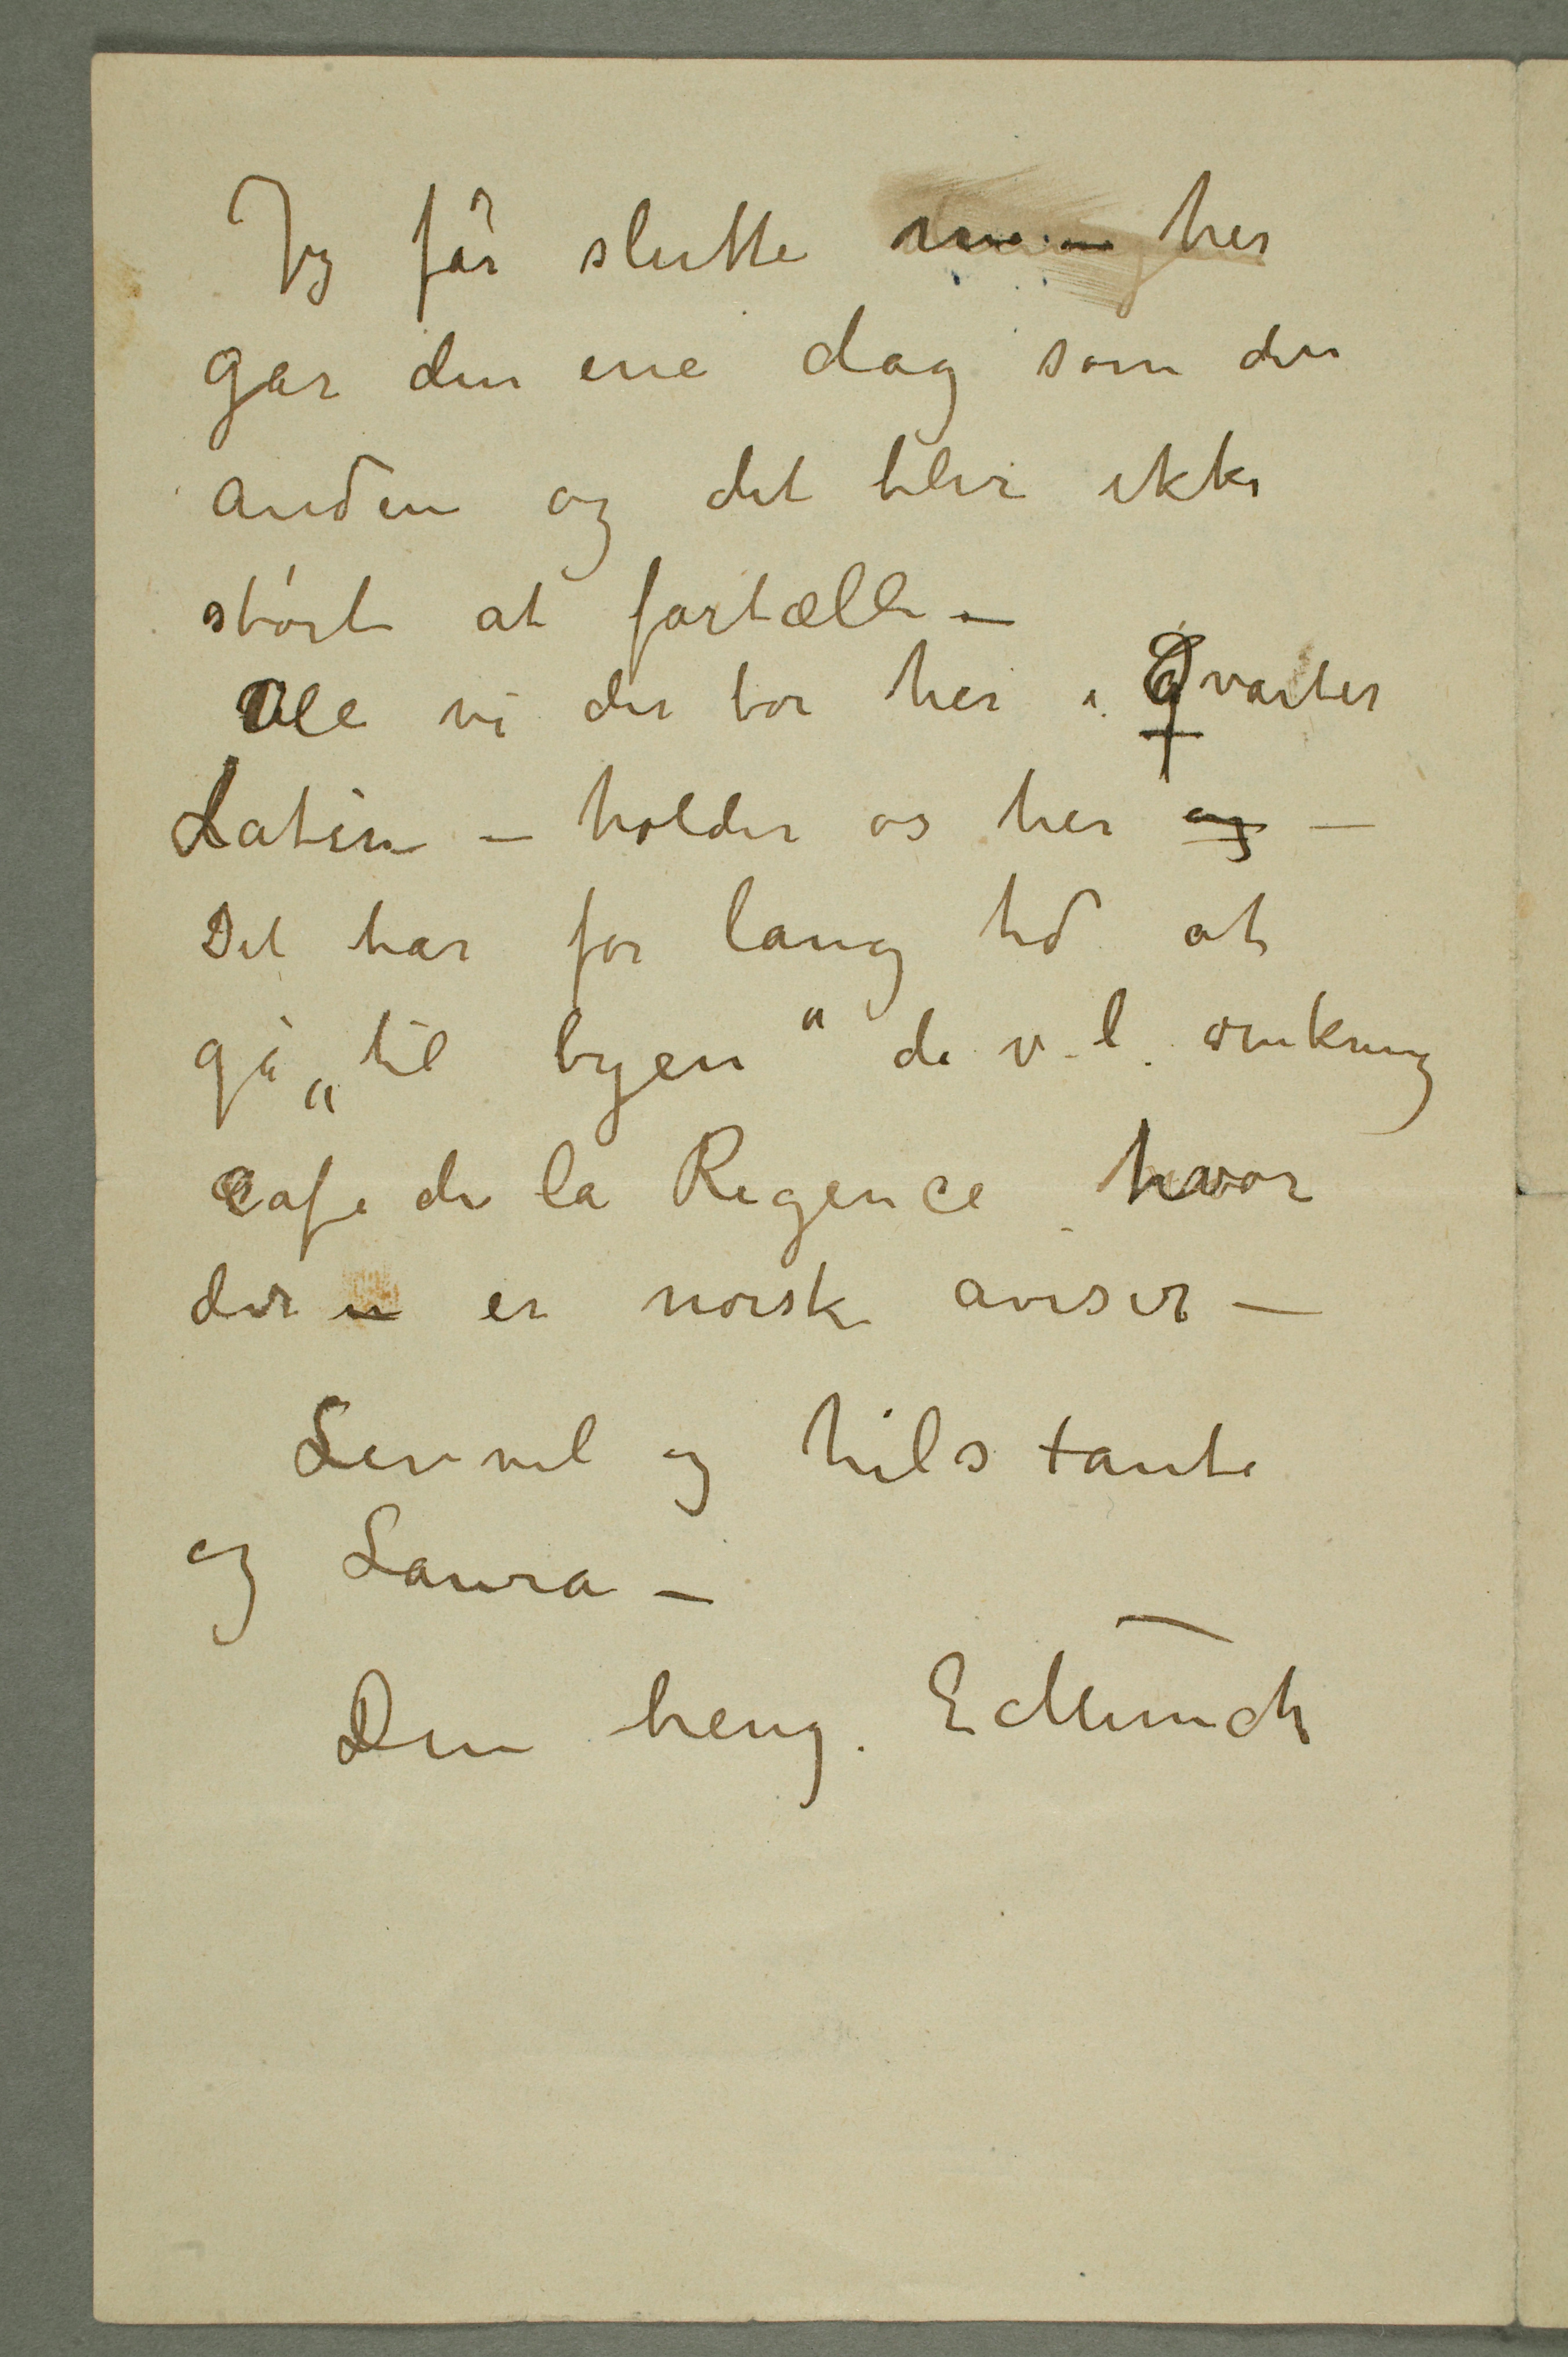 Jeg får slutte her
går den ene dag som den
anden og det blir ikke
stort at fortælle –
Alle vi der bor her i Qvarter
Latin – holder os her og –
Det tar for lang tid at
gå „til byen“ d. v. l. omkring
cafe de la Regence hvor
der er norske aviser –
Lev vel og hils tante
og Laura –
Din heng. E Munch